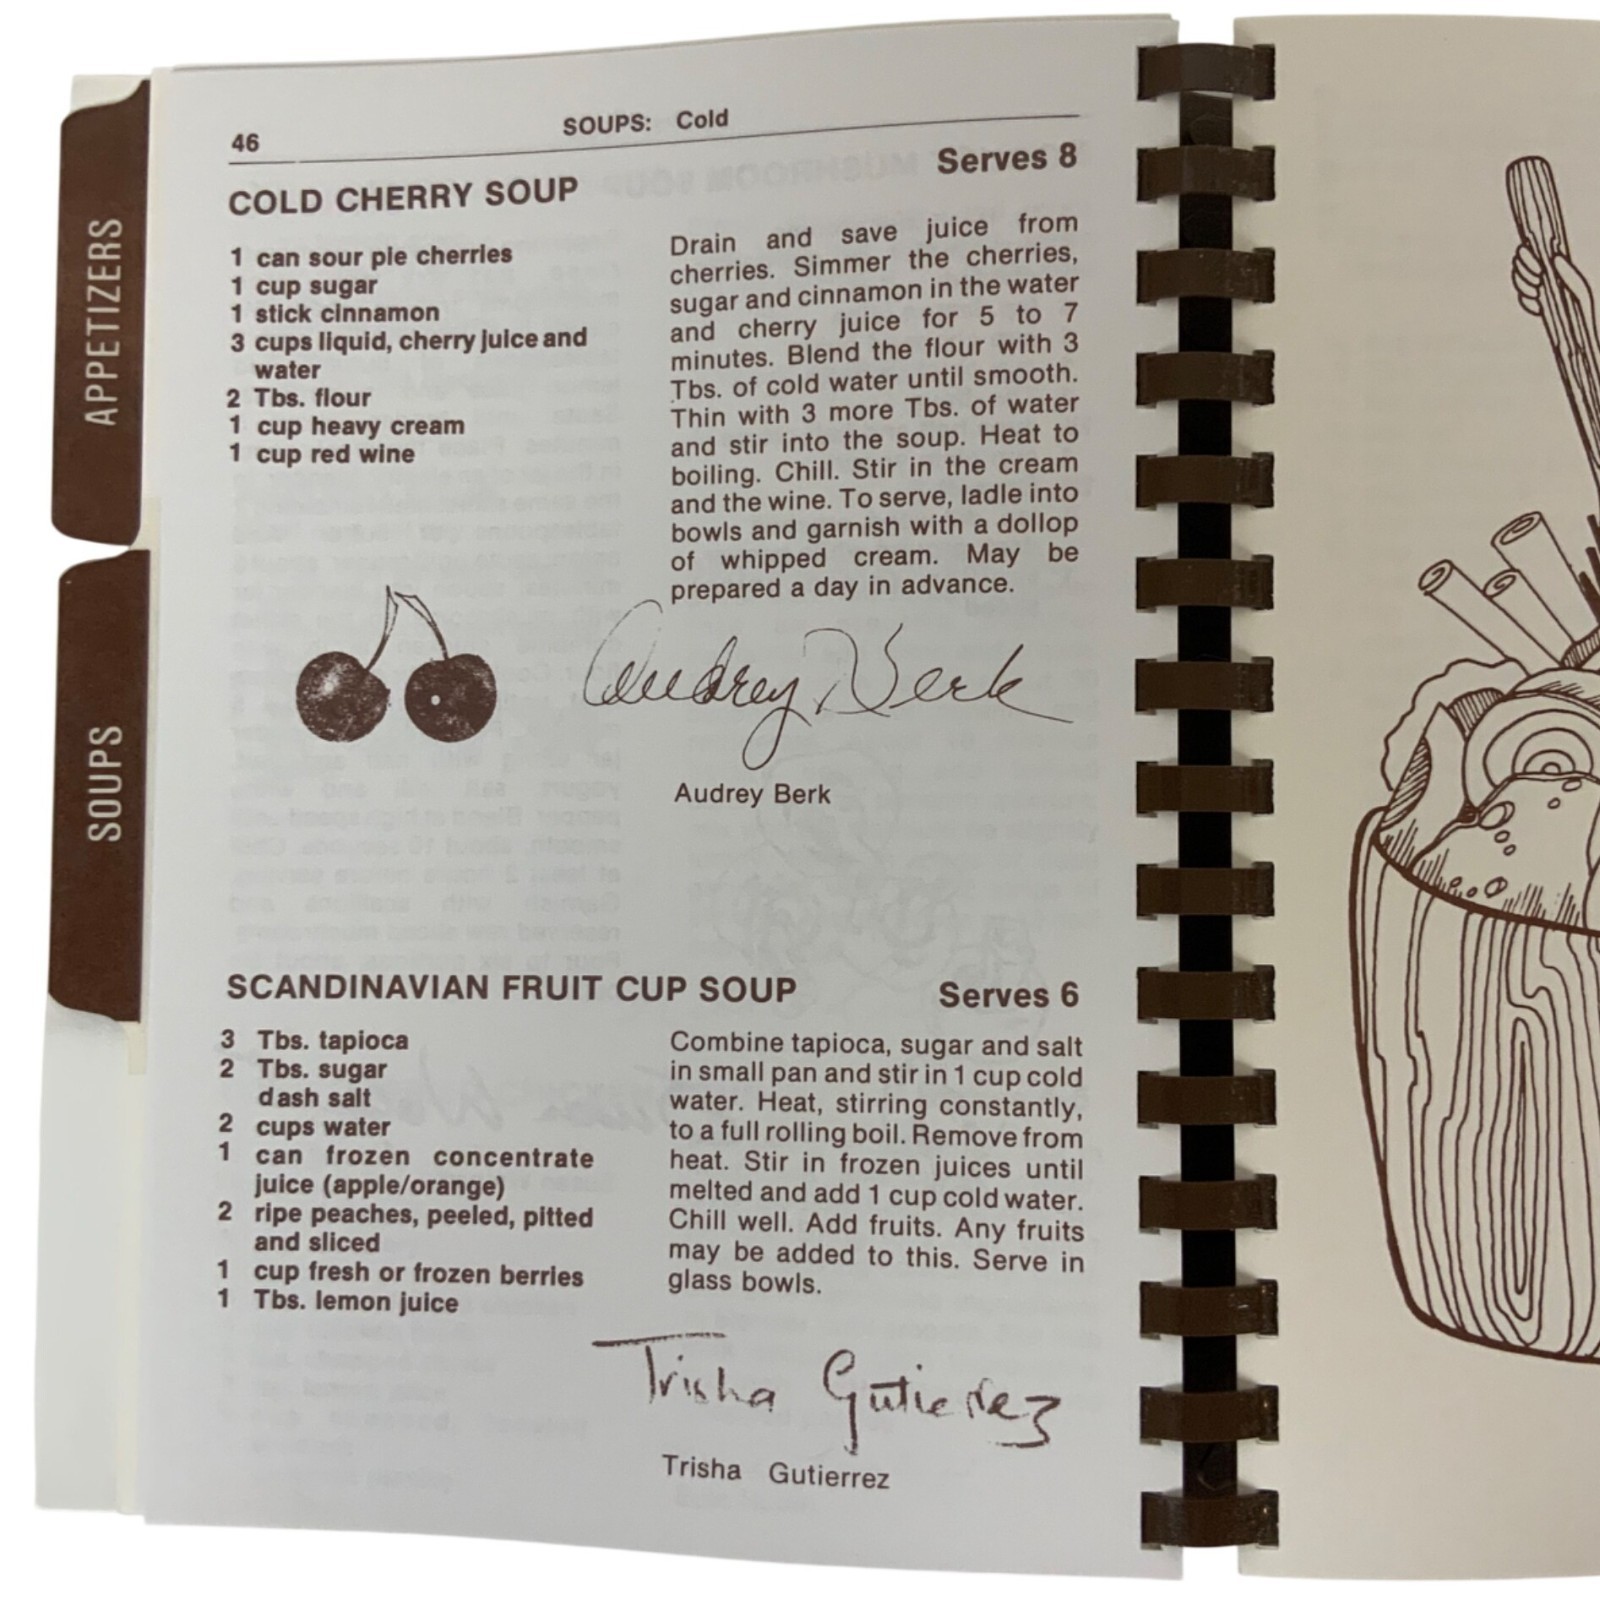 46
SOUPS: Cold
COLD CHERRY SOUP
Serves 8
1 can sour pie cherries
1 cup sugar
1 stick cinnamon
3 cups liquid, cherry juice and
water
2 Tbs. flour
1 cup heavy cream
1 cup red wine
Drain and save juice from
cherries. Simmer the cherries,
sugar and cinnamon in the water
and cherry juice for 5 to 7
minutes. Blend the flour with 3
Tbs. of cold water until smooth.
Thin with 3 more Tbs. of water
and stir into the soup. Heat to
boiling. Chill. Stir in the cream
and the wine. To serve, ladle into
bowls and garnish with a dollop
of whipped cream. May be
prepared a day in advance.
Audrey Berk
Audrey Berk
SCANDINAVIAN FRUIT CUP SOUP
Serves 6
3 Tbs. tapioca
2 Tbs. sugar
dash salt
2 cups water
1 can frozen concentrate
juice (apple/orange)
2 ripe peaches, peeled, pitted
and sliced
1 cup fresh or frozen berries
1 Tbs. lemon juice
Combine tapioca, sugar and salt
in small pan and stir in 1 cup cold
water. Heat, stirring constantly,
to a full rolling boil. Remove from
heat. Stir in frozen juices until
melted and add 1 cup cold water.
Chill well. Add fruits. Any fruits
may be added to this. Serve in
glass bowls.
Trisha Gutierrez
Trisha Gutierrez
APPETIZERS
SOUPS